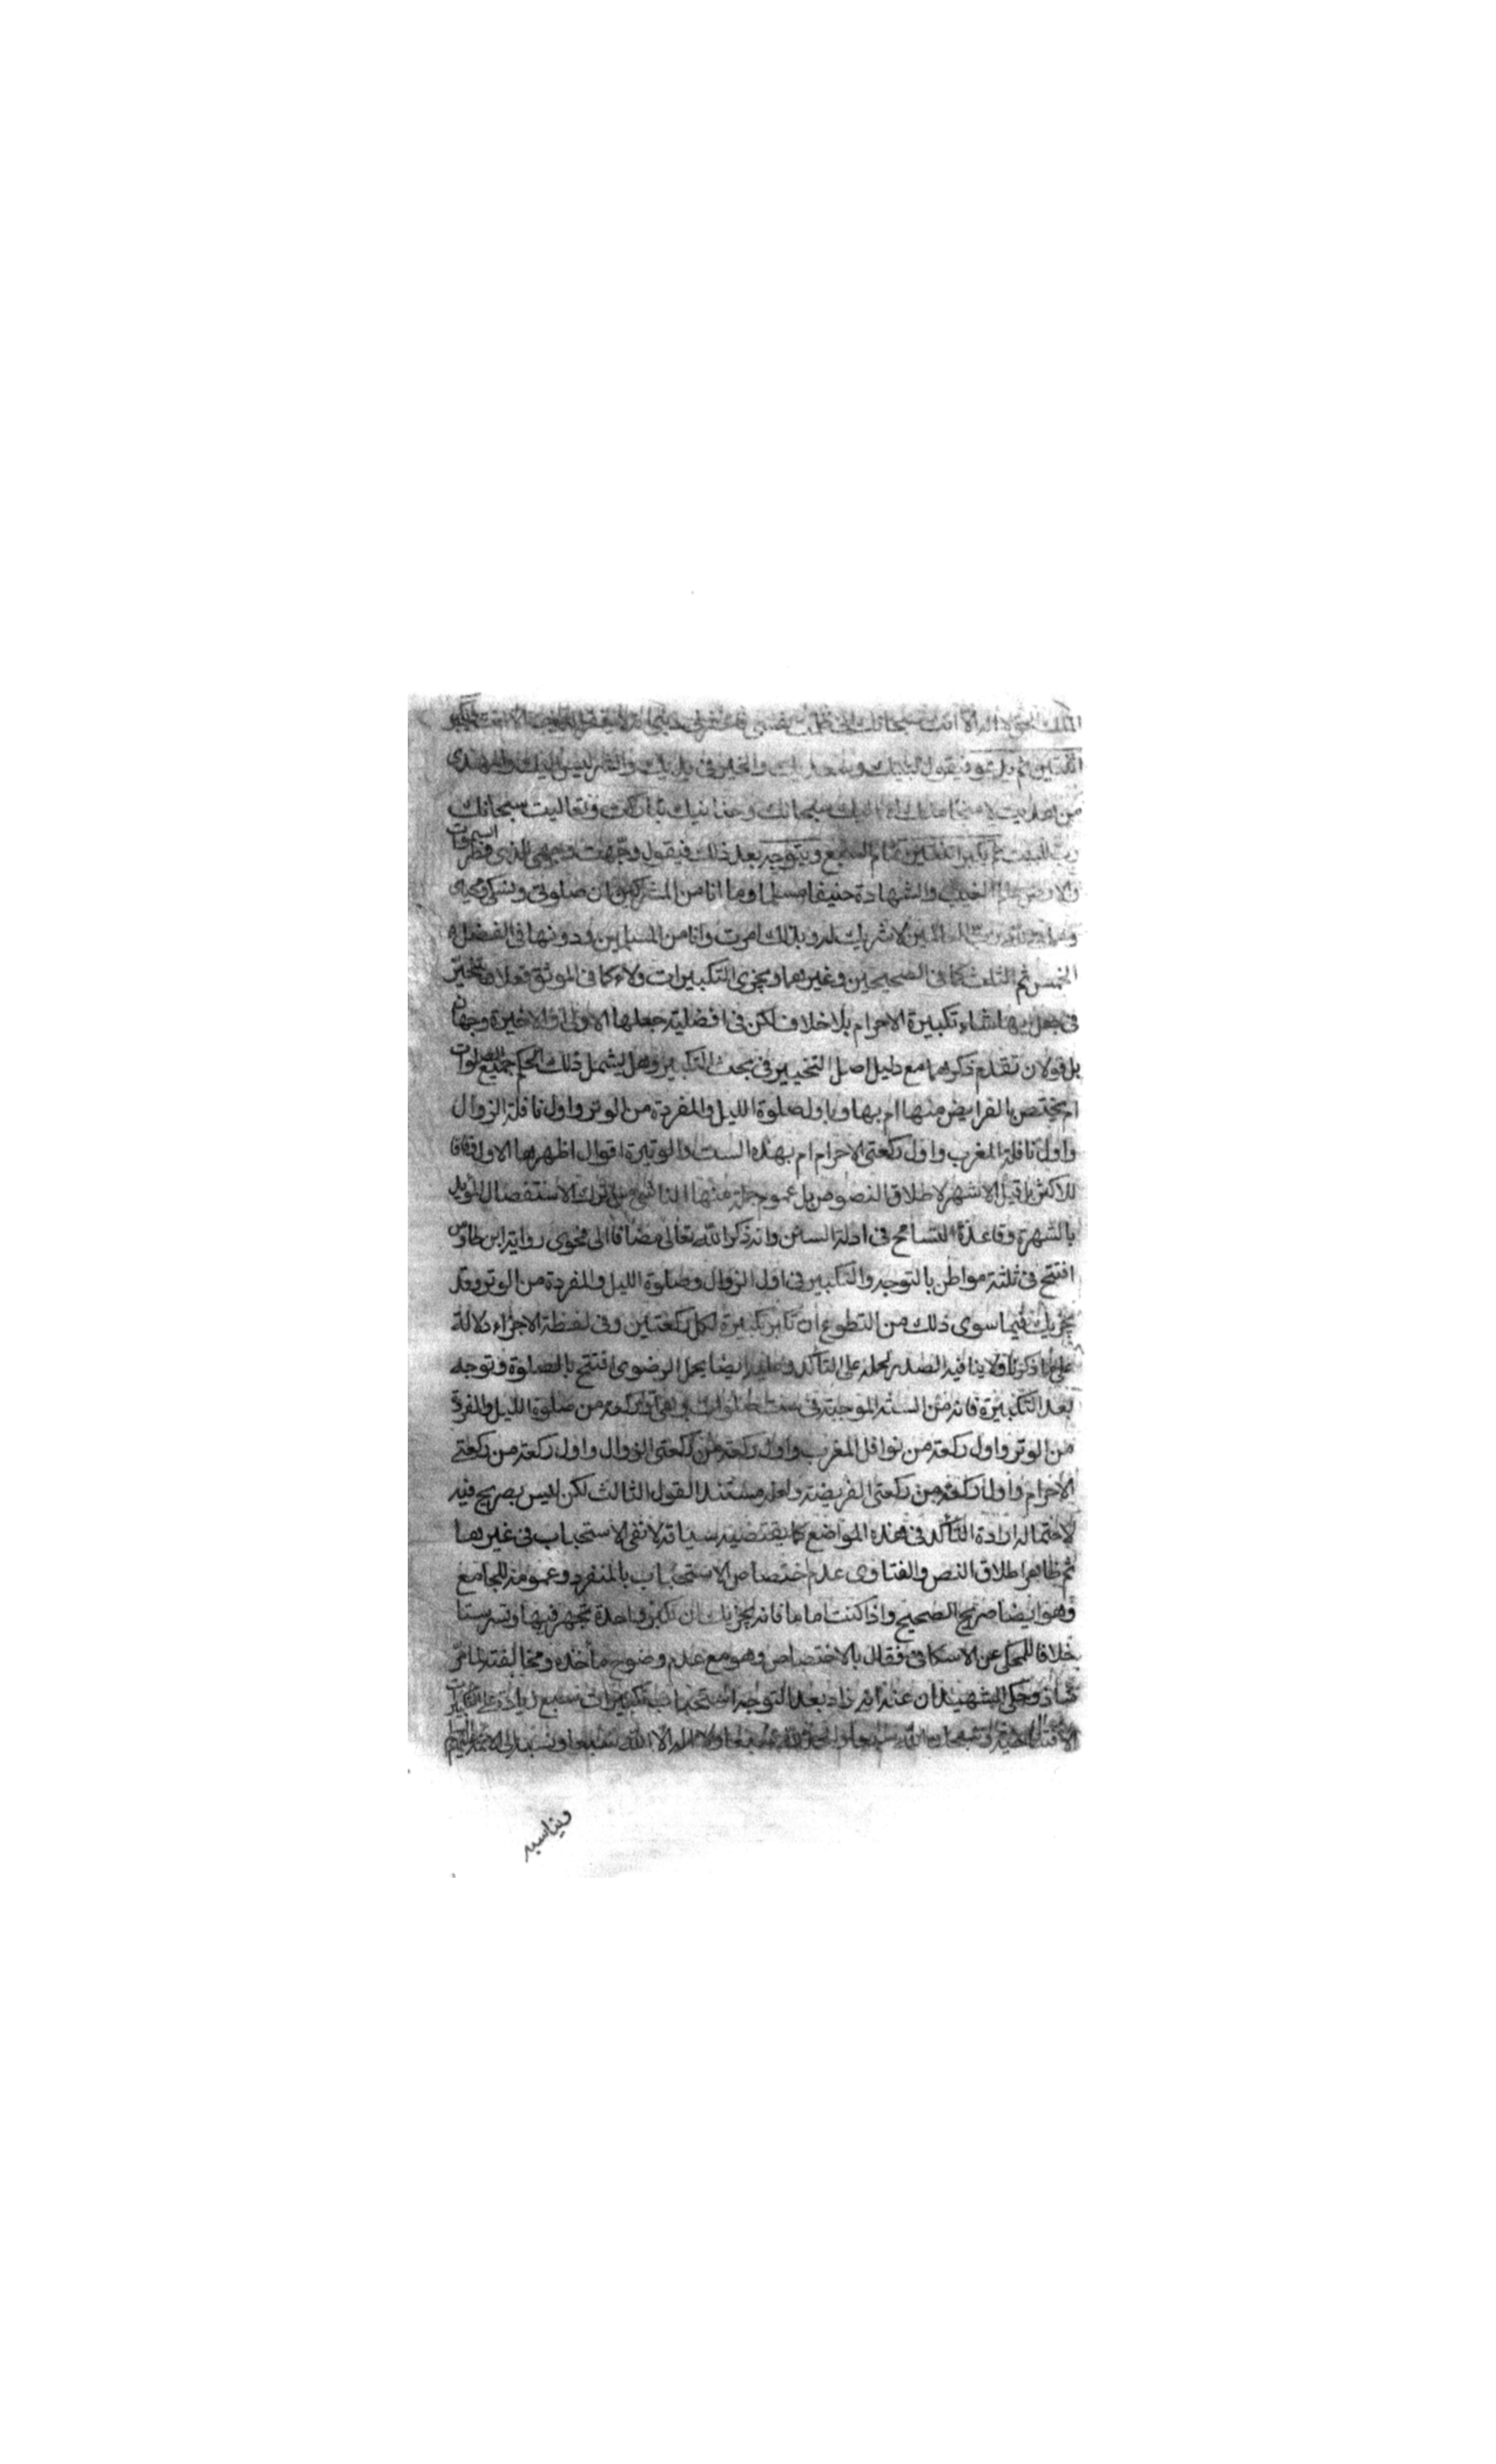 الملك الحق لا اله الا انت سبحانك انى ظلمت نفسى فاغفرلى ذنبى انه لا يغفر الذنوب الا انت ثم يكبر
اثنتين ثم يدعو فيقول لبيك وسعديك والخير فى يديك والشر ليس اليك والمهدى
من هديت لا منجا منك الا اليك سبحانك وحنانيك تباركت وتعاليت سبحانك
رب البيت ثم يكبر اثنتين تمام السبع ويتوجه بعد ذلك فيقول وجهت وجهى للذى فطر السموات
والارض عالم الغيب والشهادة حنيفا مسلما وما انا من المشركين ان صلوتى ونسكى ومحياى
ومماتى لله رب العالمين لا شريك له وبذلك امرت وانا من المسلمين ودونها فى الفضل
الخمس ثم الثلث كما فى الصحيحين وغيرهما ويجزى التكبيرات ولاء كما فى الموثق فعلا
فى جعل ايها شاء تكبيرة الاحرام بلا خلاف لكن فى افضلية جعلها الاولى او الاخيرة وجهان
بل قولان تقدم ذكرهما مع دليل اصل التخيير فى بحث التكبير وهل يشمل ذلك الحكم جميع الصلوات
ام يختص بالفرايض منها ام بها وباول صلوة الليل والمفردة من الوتر واول نافلة الزوال
واول نافلة المغرب واول ركعتى الاحرام ام بهذه الست والوتيرة اقوال اظهرها الاول وفاقا
للاكثر بل قيل الاشهر لاطلاق النصوص بل عموم جملة منها الناشئ من ترك الاستفصال المؤيد
بالشهرة وقاعدة التسامح فى ادلة السنن وانه ذكر الله تعالى مضافا الى فحوى رواية ابن طاوس
افتتح فى ثلثة مواطن بالتوجه والتكبير فى اول الزوال وصلوة الليل والمفردة من الوتر وقد
يجزيك فيما سوى ذلك من التطوع ان تكبر تكبيرة لكل ركعتين وفى لفظة الاجزاء دلالة
على ما ذكرنا ولا ينافيه الصدر لحمله على التأكد وعليه ايضا يحمل الرضوى افتتح بالصلوة وتوجه
بعد التكبيرة فانه من السنة الموجبة فى ست صلوات وهى اول ركعة من صلوة الليل والمفردة
من الوتر واول ركعة من نوافل المغرب واول ركعة من ركعتى الزوال واول ركعة من ركعتى
الاحرام واول ركعة من ركعتى الفريضة ولعله مستند القول الثالث لكن ليس بصريح فيه
لاحتماله ارادة التأكد فى هذه المواضع كما يقتضيه سياقه لا نفى الاستحباب فى غيرها
ثم ظاهر اطلاق النص والفتاوى عدم اختصاص الاستحباب بالمنفرد وعمومه للجامع
وهو ايضا صريح الصحيح واذا كنت اماما فانه يجزيك ان تكبر واحدة تجهر فيها وتسر ستا
خلافا للمحكى عن الاسكافى فقال بالاختصاص وهو مع عدم وضوح مأخذه ومخالفته لما مر
شاذ وحكى الشهيدان عنه انه زاد بعد التوجه استحباب تكبيرات سبع
وسبحان الله سبعا والحمد لله سبعا ولا اله الا الله سبعا ونسبه الى الائمة
ويناسبه